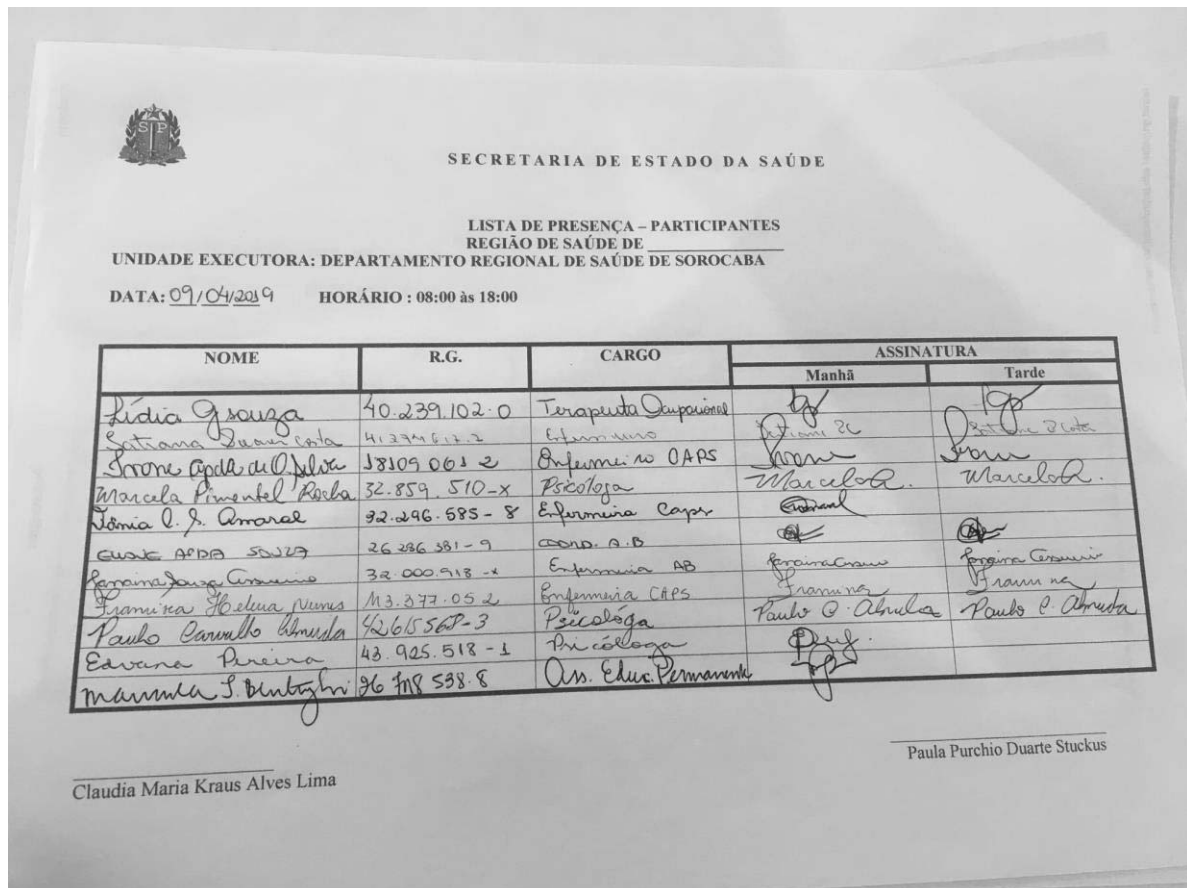 SP
SECRETARIA DE ESTADO DA SAÚDE
LISTA DE PRESENÇA – PARTICIPANTES
REGIÃO DE SAÚDE DE
UNIDADE EXECUTORA: DEPARTAMENTO REGIONAL DE SAÚDE DE SOROCABA
DATA: 09/04/2019 HORÁRIO : 08:00 às 18:00
NOME R.G. CARGO ASSINATURA
Manhã Tarde
Lídia G Souza 40.239.102.0 Terapeuta Ocupacional
Costa Enfermeiro
Ivone Apda de O. Silva 18109 061 2 Enfermeiro CAPS Ivone Ivone
Marcela Pimentel Rocha 32.859.510-x Psicóloga Marcela R. Marcela R.
Tânia C. S. Amaral 32.296.585-8 Enfermeira Caps
APDA SOUZA 26 286 381-9 COORD. A.B
Janaina Souza 32.000.918-x Enfermeira AB Janaina Janaina
Helena Nunes M3.377.052 Enfermeira CAPS
Paulo Carvalho Almeida 42615568-3 Psicológa Paulo C. Almeida Paulo C. Almeida
Edvana Pereira 43.925.518-1 Psicóloga
538.8 Ass. Educ. Permanente
Paula Purchio Duarte Stuckus
Claudia Maria Kraus Alves Lima